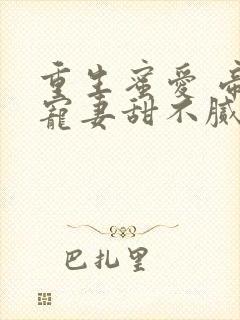 重生蜜愛
寵妻甜不膩
巴扎里